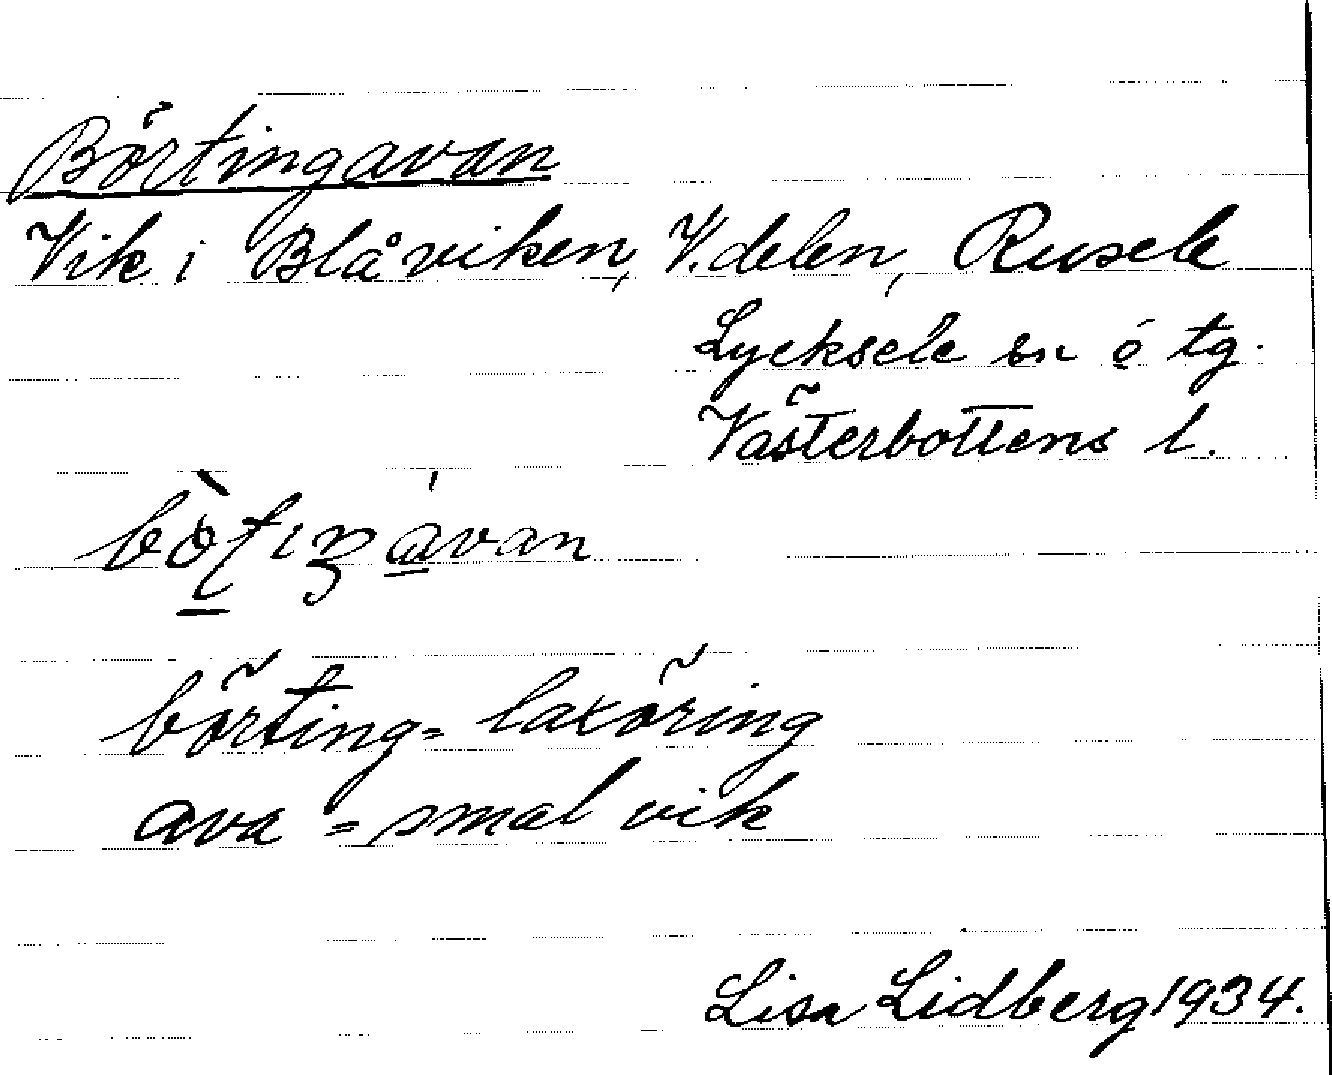 Börtingavan
Vik i Blåviken, V.delen, Rusele
Lycksele sn o tg.
Västerbottens l.
börting = laxöring
ava = smal vik
Lisa Lidberg 1934.